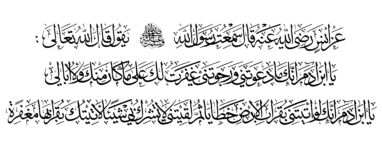 عن أنس رضي الله عنه قال سمعت رسول الله ﷺ يقول قال الله تعالى :
يا ابن آدم إنك ما دعوتني ورجوتني غفرت لك على ما كان منك ولا أبالي
يا ابن آدم إنك لو أتيتني بقراب الأرض خطايا ثم لقيتني لا تشرك بي شيئا لأتيتك بقرابها مغفرة